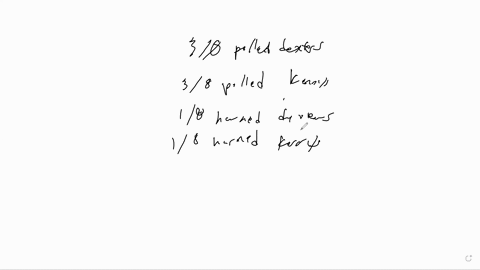 3/8 polled dexters
3/8 polled Kerrys
1/8 horned dexters
1/8 horned Kerrys